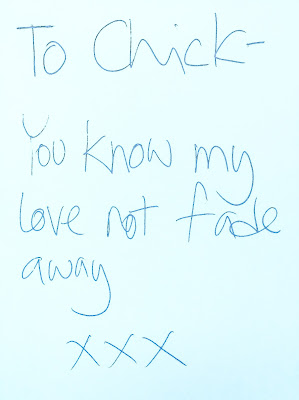 To Chick-
You know my
love not fade
away
xxx